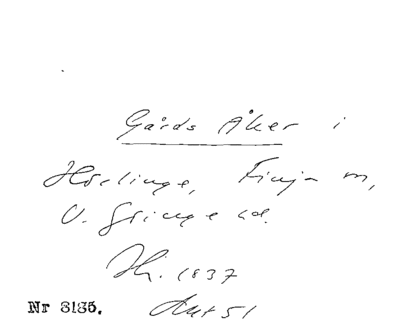 Gårds Åker i
Hörlinge, Finja m,
V. Göinge hd.
Hh. 1837
Nr 3135. Akt 51